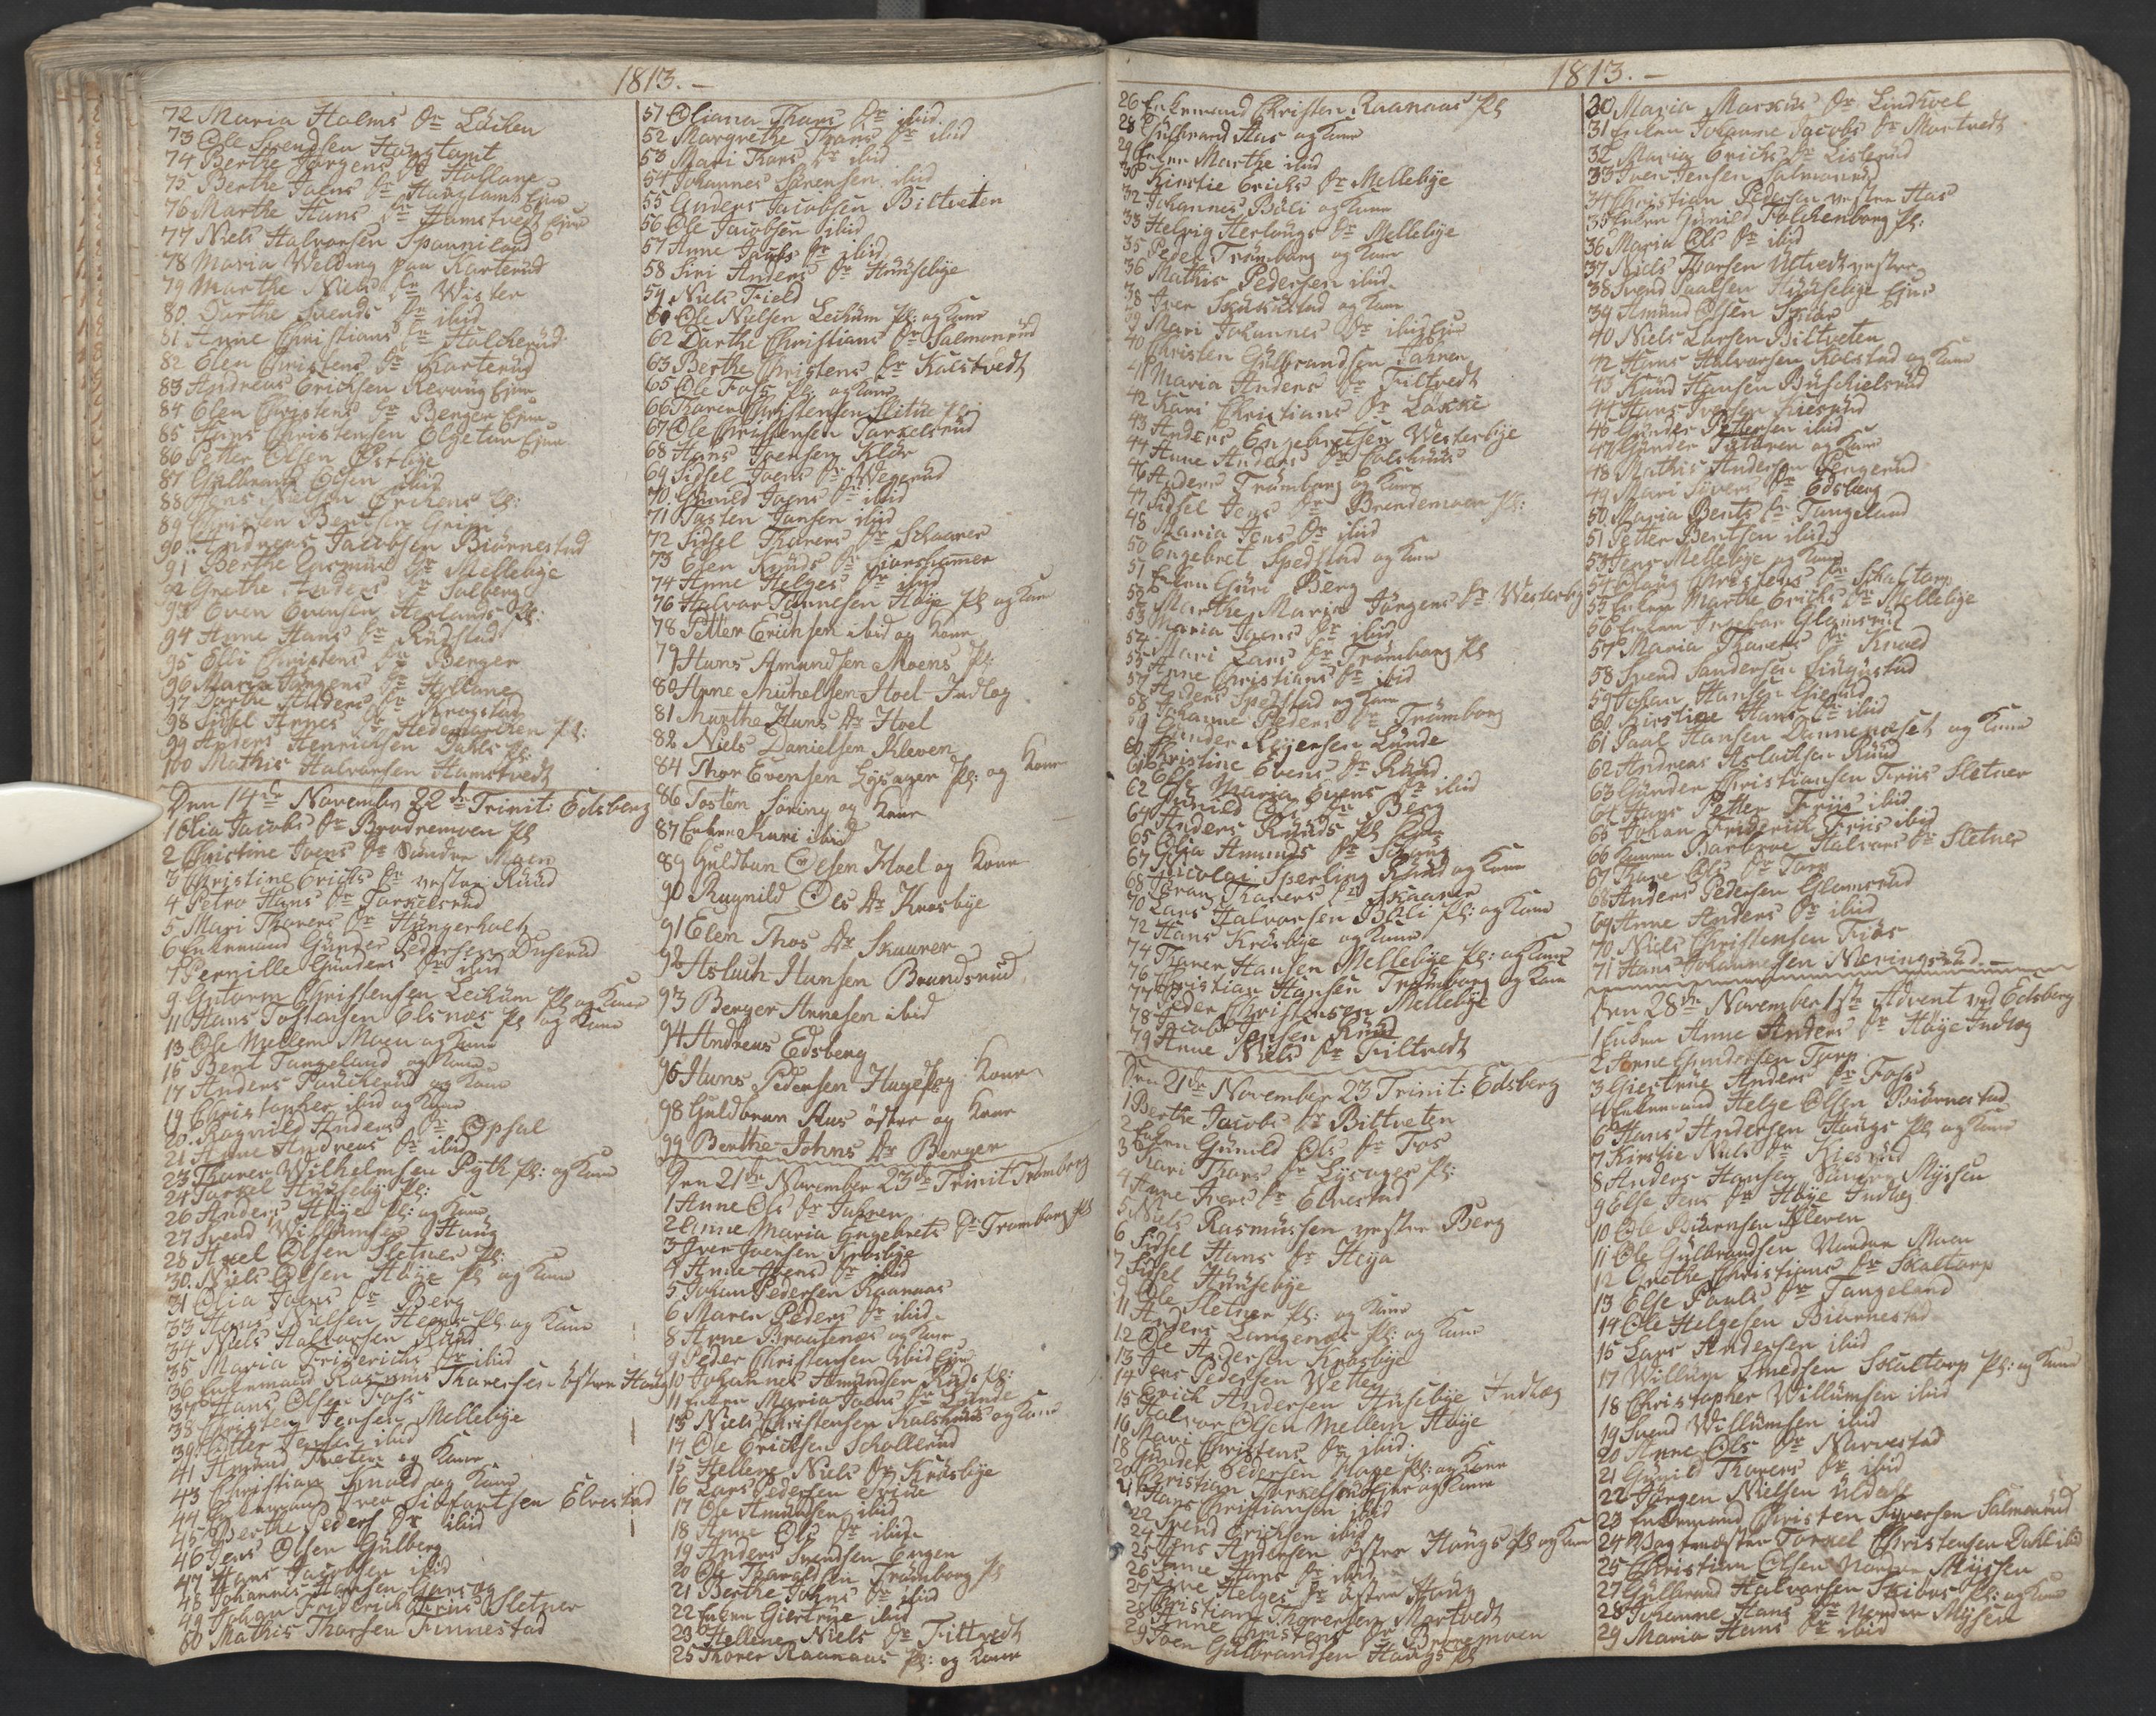 1813.-
72 Maria Halms Dr Löchen
73 Ole Svendsen Hamstamt
74 Berthe Jörgens Dr Hollane
75 Berthe Joens Dr
76 Marthe Hans Dr Hamstvedt Ejer
77 Niels Halvorsen Spanniland
78 Maria Welding paa Karterud
79 Marthe Niels Dr Wister
80. Dorthe Svends Dr ibid
81 Anne Christians Dr Halcherud
82 Elen Christens Dr Karterud
83 Andreas Erichsen
84 Elen Christens Dr Berger
85 Hans Christensen Elgetun
86 Petter Olsen Östbye
87 Gulbrand Olsen ibid
88 Jens Nielsen Pl:
89 Christen Bentsen Grim
90. Andreas Jacobsen Biörnestad
91 Berthe Dr Mellebye
92 Grethe Anders Dr Solberg
93 Even Evensen Herlands Pl:
94 Anne Hans Dr Rudstad
95 Elli Christens Dr Berger
96 Maria Jörgens Dr Hollane
97 Dorthe Anders Dr Krogstad
98 Sidsel Arnes Dr Pl:
99 Anders Henrichsen Dahls Pl:
100 Mathis Halvorsen Hamstvedt
Den 14de November 22de Trinit: Edsberg
1 Olia Jacobs Dr Brødremoen Pl
2 Christine Joens Dr Söndre Moen
3 Christine Erichs Dr vestre Ruud
4 Petro Hans Dr Torkelsrud
5 Mari Thorers Dr Hungerholt
6 Enkemand Gunder Pedersen Buserud
7 Pernille Gunders Dr ibid
9 Gutorm Christensen Lekum Pl og Kone
11 Hans Tostensen Elsnæs Pl og Kone
13 Ole Mellem Moen og Kone
15 Bent Tangeland og Kone
17 Anders og Kone
19 Christopher ibid og Kone
20. Ragnild Anders Dr Opsal
21 Anne Andreas Dr ibid
23 Thorer Wilhelmsen Pyth Pl: og Kone
24 Torkel Huusebye Pl:
26 Anders Höye Pl: og Kone
27 Svend Willumsen Haug
28 Axel Olsen Sletner Pl:
30. Niels Olsen Höye Pl og Kone
31 Olia Joens Dr Berg
33 Hans Nielsen Pl og Kone
34 Niels Halvorsen Ruud
35 Maria Friderichs Dr ibid
36 Enkemand Rasmus Thoresen östre Haug
37 Hans Olsen Foss
38 Christen Jensen Mellebye
39 Petter Jensen ibid
41 Amund Tveten og Kone
43 Christian Knold og Kone
44 Enkemand Iver Elvestad
45 Berthe Peders Dr ibid
46 Jens Olsen Gulberg
47 Hans Jacobsen ibid
48 Johannes Hansen
49 Johan Friderich Friis Sletner
50 Mathis Thorsen Finnestad
51 Oliana Thors Dr ibid
52 Margrethe Thors Dr ibid
53 Mari Thors Dr ibid
54 Johannes Sörensen ibid
55 Anders Jacobsen Biltveten
56 Ole Jacobsen ibid
57 Anne Jacobs Dr ibid
58 Siri Anders Dr Huusebye
59 Niels Field
60 Ole Nielsen Lechum Pl: og Kone
62 Dorthe Christians Dr Salmonrud
63 Berthe Christens Dr Kolstvedt
65 Ole Foss Pl og Kone
66 Thorer Christensen Slitue Pl:
67 Ole Christensen Torkelsrud
68 Hans Joensen Klör
69 Sidsel Joens Dr Wegerud
70. Gunild Joens Dr ibid
71 Tosten Jansen ibid
72 Sidsel Thorers Dr Schaarer
73 Elen Knuds Dr
74 Anne Helges Dr ibid
76 Halvor Tönnesen Höye Pl og Kone
78 Petter Erichsen ibid og Kone
79 Hans Amundsen Moens Pl:
80 Anne Michelsen Hoel Indlog
81 Marthe Hans Dr Hoel
82 Niels Danielsen Kleven
84 Thor Evensen Lysager Pl: og Kone
86 Tosten Söring og Kone
87 Enken Kari ibid
89 Guldbran Olsen Hoel og Kone
90 Ragnild Oles Dr Krosbye
91 Elen Thos Dr Skaarer
92 Asluch Hansen Brandsrud
93 Berger Arnesen ibid
94 Andreas Edsberg
96 Hans Pedersen Hage og Kone
98 Guldbran Aas östre og Kone
99 Berthe Johns Dr Berger
Den 21de November 23de Trinit Trömborg
1 Anne Ols Dr Jahren
2 Anne Maria Engebrets Dr Tromborg Pl
3 Iver Joensen Krosbye
4 Anne Joens Dr ibid
5 Johan Pedersen Raanaas
6 Maren Peders Dr ibid
8 Arne Braatenæs og Kone
9 Peder Christensen ibid Ejer
10 Johannes Amundsen Ruds Pl:
11 Enken Maria Joens Dr Lunde
13 Niels Christensen Kolshuus og Kone
14 Ole Erichsen Schollerud
15 Hellene Niels Dr Krosbye
16 Lars Pedersen Grue
17 Ole Amundsen ibid
18 Anne Ols Dr ibid
19 Anders Svendsen Engen
20 Ole Tharaldsen Trömborg Pl
21 Berthe Johns Dr ibid
22 Enken Giertrue ibid
23 Hellene Niels Dr Filtvedt
25 Thorer Raanaas Pl: og Kone
1813.-
26 Enkemand Christen Raanaas Pl
28 Gulbrand Aas og Kone
29 Enken Marthe ibid
30 Kirstie Erichs Dr Mellebye
32 Johannes Böli og Kone
33 Helvig Herlougs Dr Mellebye
35 Peder Trömborg og Kone
36 Mathis Pedersen ibid
38 Iver og Kone
39 Mari Johannes Dr ibid Ejer
40 Christen Gulbrandsen Jahren
41 Maria Anders Dr Filtvedt
42 Kari Christians Dr Løkke
43 Anders Engebretsen Westerbye
44 Anne Anders Dr Colshuus
46 Anders Trömborg og Kone
47 Sidsel Jens Dr Brendemoen Pl:
48 Maria Jens Dr ibid
50 Engebret Spedstad og Kone
51 Enken Guri Berg
52 Marthe Maria Jörgens Dr Westerby
53 Maria Joens Dr ibid
54 Mari Lars Dr Trömborg Pl
55 Anne Christians Dr ibid
57 Anders Spedstad og Kone
58 Johanne Peders Dr Trömborg
59 Gunder Reyersen Lunde
60 Christine Evens Dr Ruud
61 Else Maria Evens Dr ibid
62 Gunild Ols Dr Berg
64 Anders Ruuds Pl Kone
65 Olia Amunds Dr Schoug
67 Nicolai Sperling Ruud og Kone
68 Joran Thorers Dr Skaarer
70 Lars Halvorsen Böli Pl: og Kone
72 Hans Krosbye og Kone
74 Thorer Hansen Mellebye Pl: og Kone
76 Christian Hansen Trömborg og Kone
77 Peder Christensen Mellebye
78 Jacob Jensen Ruud
79 Anne Niels Dr Filtvedt
Den 21de November 23 Trinit: Edsberg
1 Berthe Jacobs Dr Biltveten
2 Enken Gunild Ols Dr Fos
3 Kari Thors Dr Lysager Pl:
4 Anne Ivers Dr Elvestad
5 Niels Rasmussen vestre Berg
6 Sidsel Hans Dr Heya
7 Sidsel Huusebye
9 Ole Sletner Pl: og Kone
11 Anders Langenæs Pl: og Kone
12 Ole Andersen Krosbye
13 Jens Pedersen Wetlen
14 Erich Andersen Husebye Indlog
15 Halvor Olsen Mellem Höye
16 Mari Christens Dr ibid
18 Gunder Pedersen Hage Pl: og Kone
20 Christian Torkelsrud Ejer og Kone
21 Hans Christiansen ibid
22 Svend Erichsen ibid
24 Jens Andersen östre Haugs Pl og Kone
25 Anne Hans Dr ibid
26 Anne Helges Dr östre Haug
27 Christian Thoresen Mortvedt
28 Anne Christens Dr Brödremoen
29 Joen Gulbrandsen Haugs Pl
30 Maria Marxus Dr Lindhoel
31 Enken Johanne Jacobs Dr Mortvedt
32 Maria Erichs Dr Listerud
33 Iver Jensen Salmonrud
34 Christian Pedersen vestre Aas
35 Enken Gunild Falchenborg Pl:
36 Maria Ols Dr ibid
37 Niels Thorsen Ultvedt vestre
38 Svend Paalsen Huusebye Ejer
39 Amund Olsen Fröer
40 Niels Larsen Biltveten
42 Hans Halvorsen Kolstad og Kone
43 Knud Hansen Buschielsrud
44 Hans Iversen Kiesrud
45 Gunder Pettersen ibid
47 Gunder Tutteren og Kone
48 Mathis Andersen Hengerud
49 Mari Sivers Dr Edsberg
50 Maria Bents Dr Tangeland
51 Petter Bentsen ibid
53 Jens Mellebye og Kone
54 Aslaug Christens Dr Schaltorp
55 Enken Marthe Erichs Dr Mellebye
56 Enken Ingebor Glomsrud
57 Maria Thorers Dr Knoed
58 Svend Sandersen
59 Johan Hansen Gierud
60 Kirstine Hans Dr ibid
61 Paal Hansen Dannevaset og Kone
62 Andreas Aslachsen Ruud
63 Gunder Christiansen Friis Sletner
64 Hans Petter Friis ibid
65 Johan Friderich Friis ibid
66 Karen Barbroe Halvors Dr Sletner
67 Thore Ols Dr Torp
68 Anders Pedersen Glomsrud
69 Anne Anders Dr ibid
70 Niels Christensen Fröer
71 Hans Johannesen Neringsrud
Den 28de November 1ste Advent ved Edsberg
1 Enken Anne Anders Dr Höye Indlog
2 Arne Gundersen Torp
3 Giertrue Anders Dr Foss
4 Enkemand Helge Olsen Biörnestad
6 Hans Andersen Haugs Pl og Kone
7 Kirstie Niels Dr Kiesrud
8 Anders Hansen Søndre Mysen
9 Else Jens Dr Höye Indlog
10 Ole Biörnsen Kleven
11 Ole Gulbrandsen Nordre Moen
12 Grethe Christians Dr Skaltorp
13 Else Pauls Dr Tangeland
14 Ole Helgesen Biörnestad
15 Lars Andersen ibid
17 Willum Smedsen Scaltorp Pl: og Kone
18 Christopher Willumsen ibid
19 Svend Willumsen ibid
20 Anne Ols Dr Narvestad
21 Gunild Thorers Dr ibid
22 Jörgen Nielsen Uldahl
23 Enkemand Christen Syversen Salmonrud
24 Vagtmester Torkel Christensen Dahl ibid
25 Christian Olsen Nordre Myssen
27 Gulbrand Halvorsen Skibnes Pl: og Kone
28 Johanne Hans Dr Nordre Mysen
29 Maria Hans Dr ibid